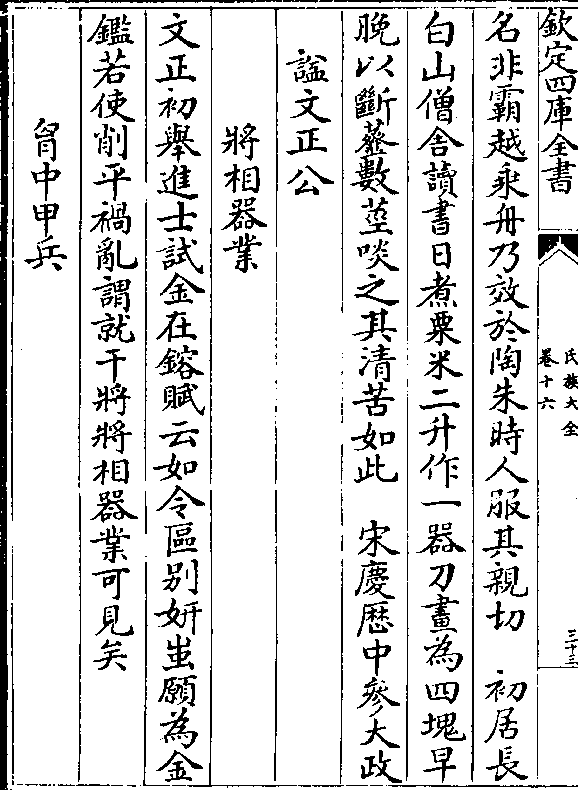 欽定四庫全書
氏族大全
卷十六
三十三
名非霸越乘舟乃效於陶朱時人服其親切　初居長
白山僧舍讀書日煮粟米二升作一器刀畫為四塊早
晚以斷虀數莖啖之其清苦如此　宋慶厯中參大政
諡文正公
將相器業
文正初舉進士試金在鎔賦云如令區别妍蚩願為金
鑑若使削平禍亂謂就干將將相器業可見矣
胷中甲兵